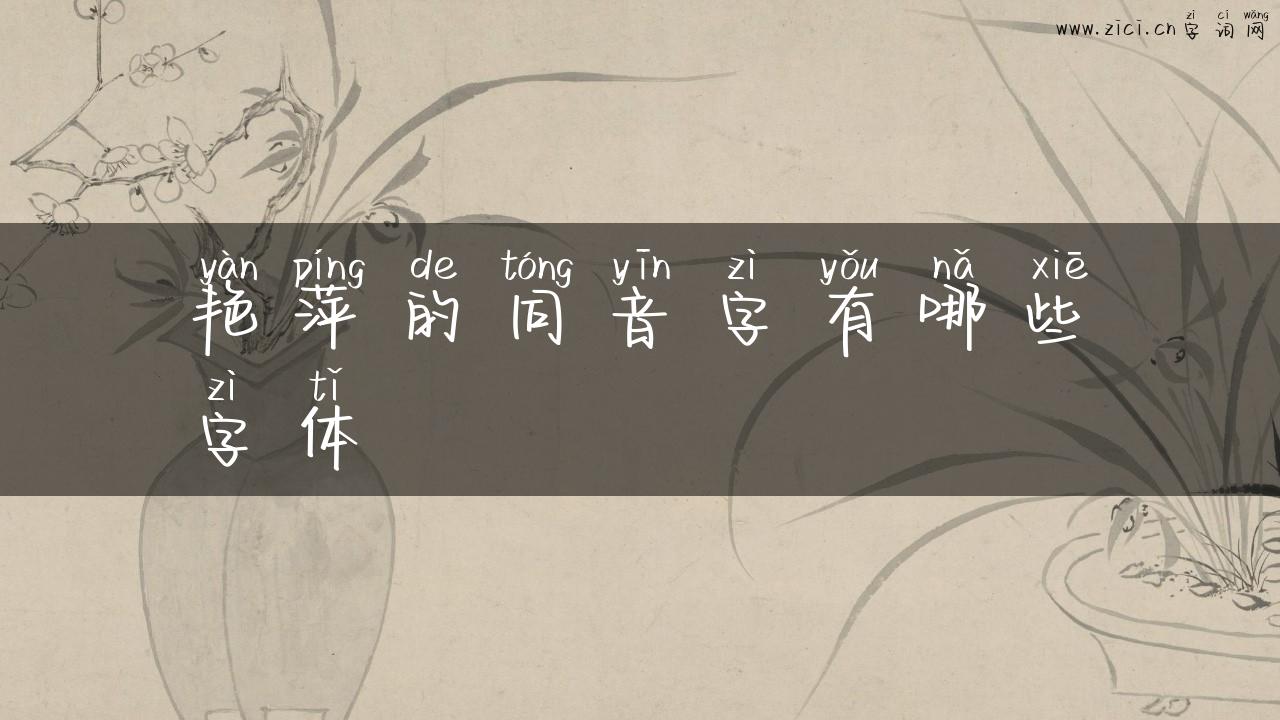 zì cí wǎng
www.zici.cn 字词网
yàn píng de tóng yīn zì yǒu nǎ xiē
艳萍的同音字有哪些
zì tǐ
字体